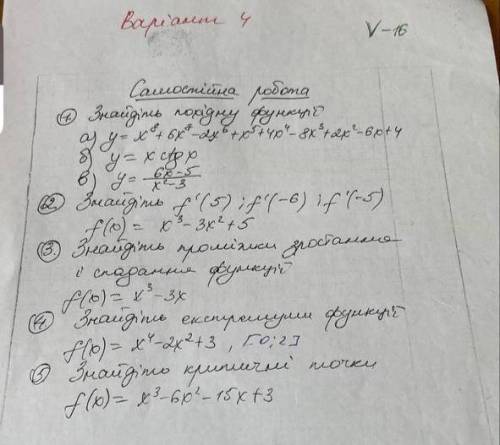 Варіант 4
V-16
Самостійна робота
1. Знайдіть похідну функції
а) y = x⁸ + 6x⁷ - 2x⁶ + x⁵ + 4x⁴ - 8x³ + 2x² - 6x + 4
б) y = x ctg x
в) y = (6x-5)/(x²-3)
2. Знайдіть f'(5) ; f'(-6) ; f'(-5)
f(x) = x³ - 3x² + 5
3. Знайдіть проміжки зростання
і спадання функції
f(x) = x³ - 3x
4. Знайдіть екстремуми функції
f(x) = x⁴ - 2x² + 3 , [0;2]
5. Знайдіть критичні точки
f(x) = x³ - 6x² - 15x + 3